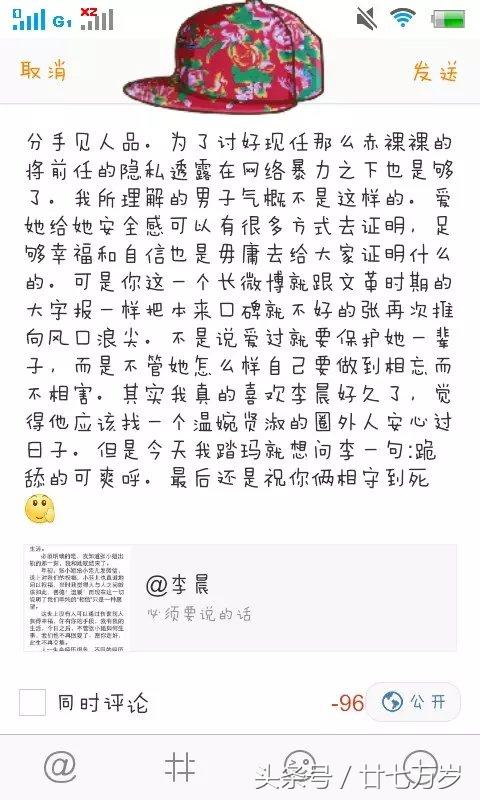 G1 XZ
取消
发送
分手见人品。为了讨好现任那么赤裸裸的
将前任的隐私透露在网络暴力之下也是够
了。我所理解的男子气概不是这样的。爱
她给她安全感可以有很多方式去证明,足
够幸福和自信也是毋庸去给大家证明什么
的。可是你这一个长微博就跟文革时期的
大字报一样把本来口碑就不好的张再次推
向风口浪尖。不是说爱过就要保护她一辈
子,而是不管她怎么样自己要做到相忘而
不相害。其实我真的喜欢李晨好久了,觉
得他应该找一个温婉贤淑的圈外人安心过
日子。但是今天我踏玛就想问李一句:跪
舔的可爽呼。最后还是祝你俩相守到死
@李晨
必须要说的话
同时评论
-96
公开
头条号/廿七万岁